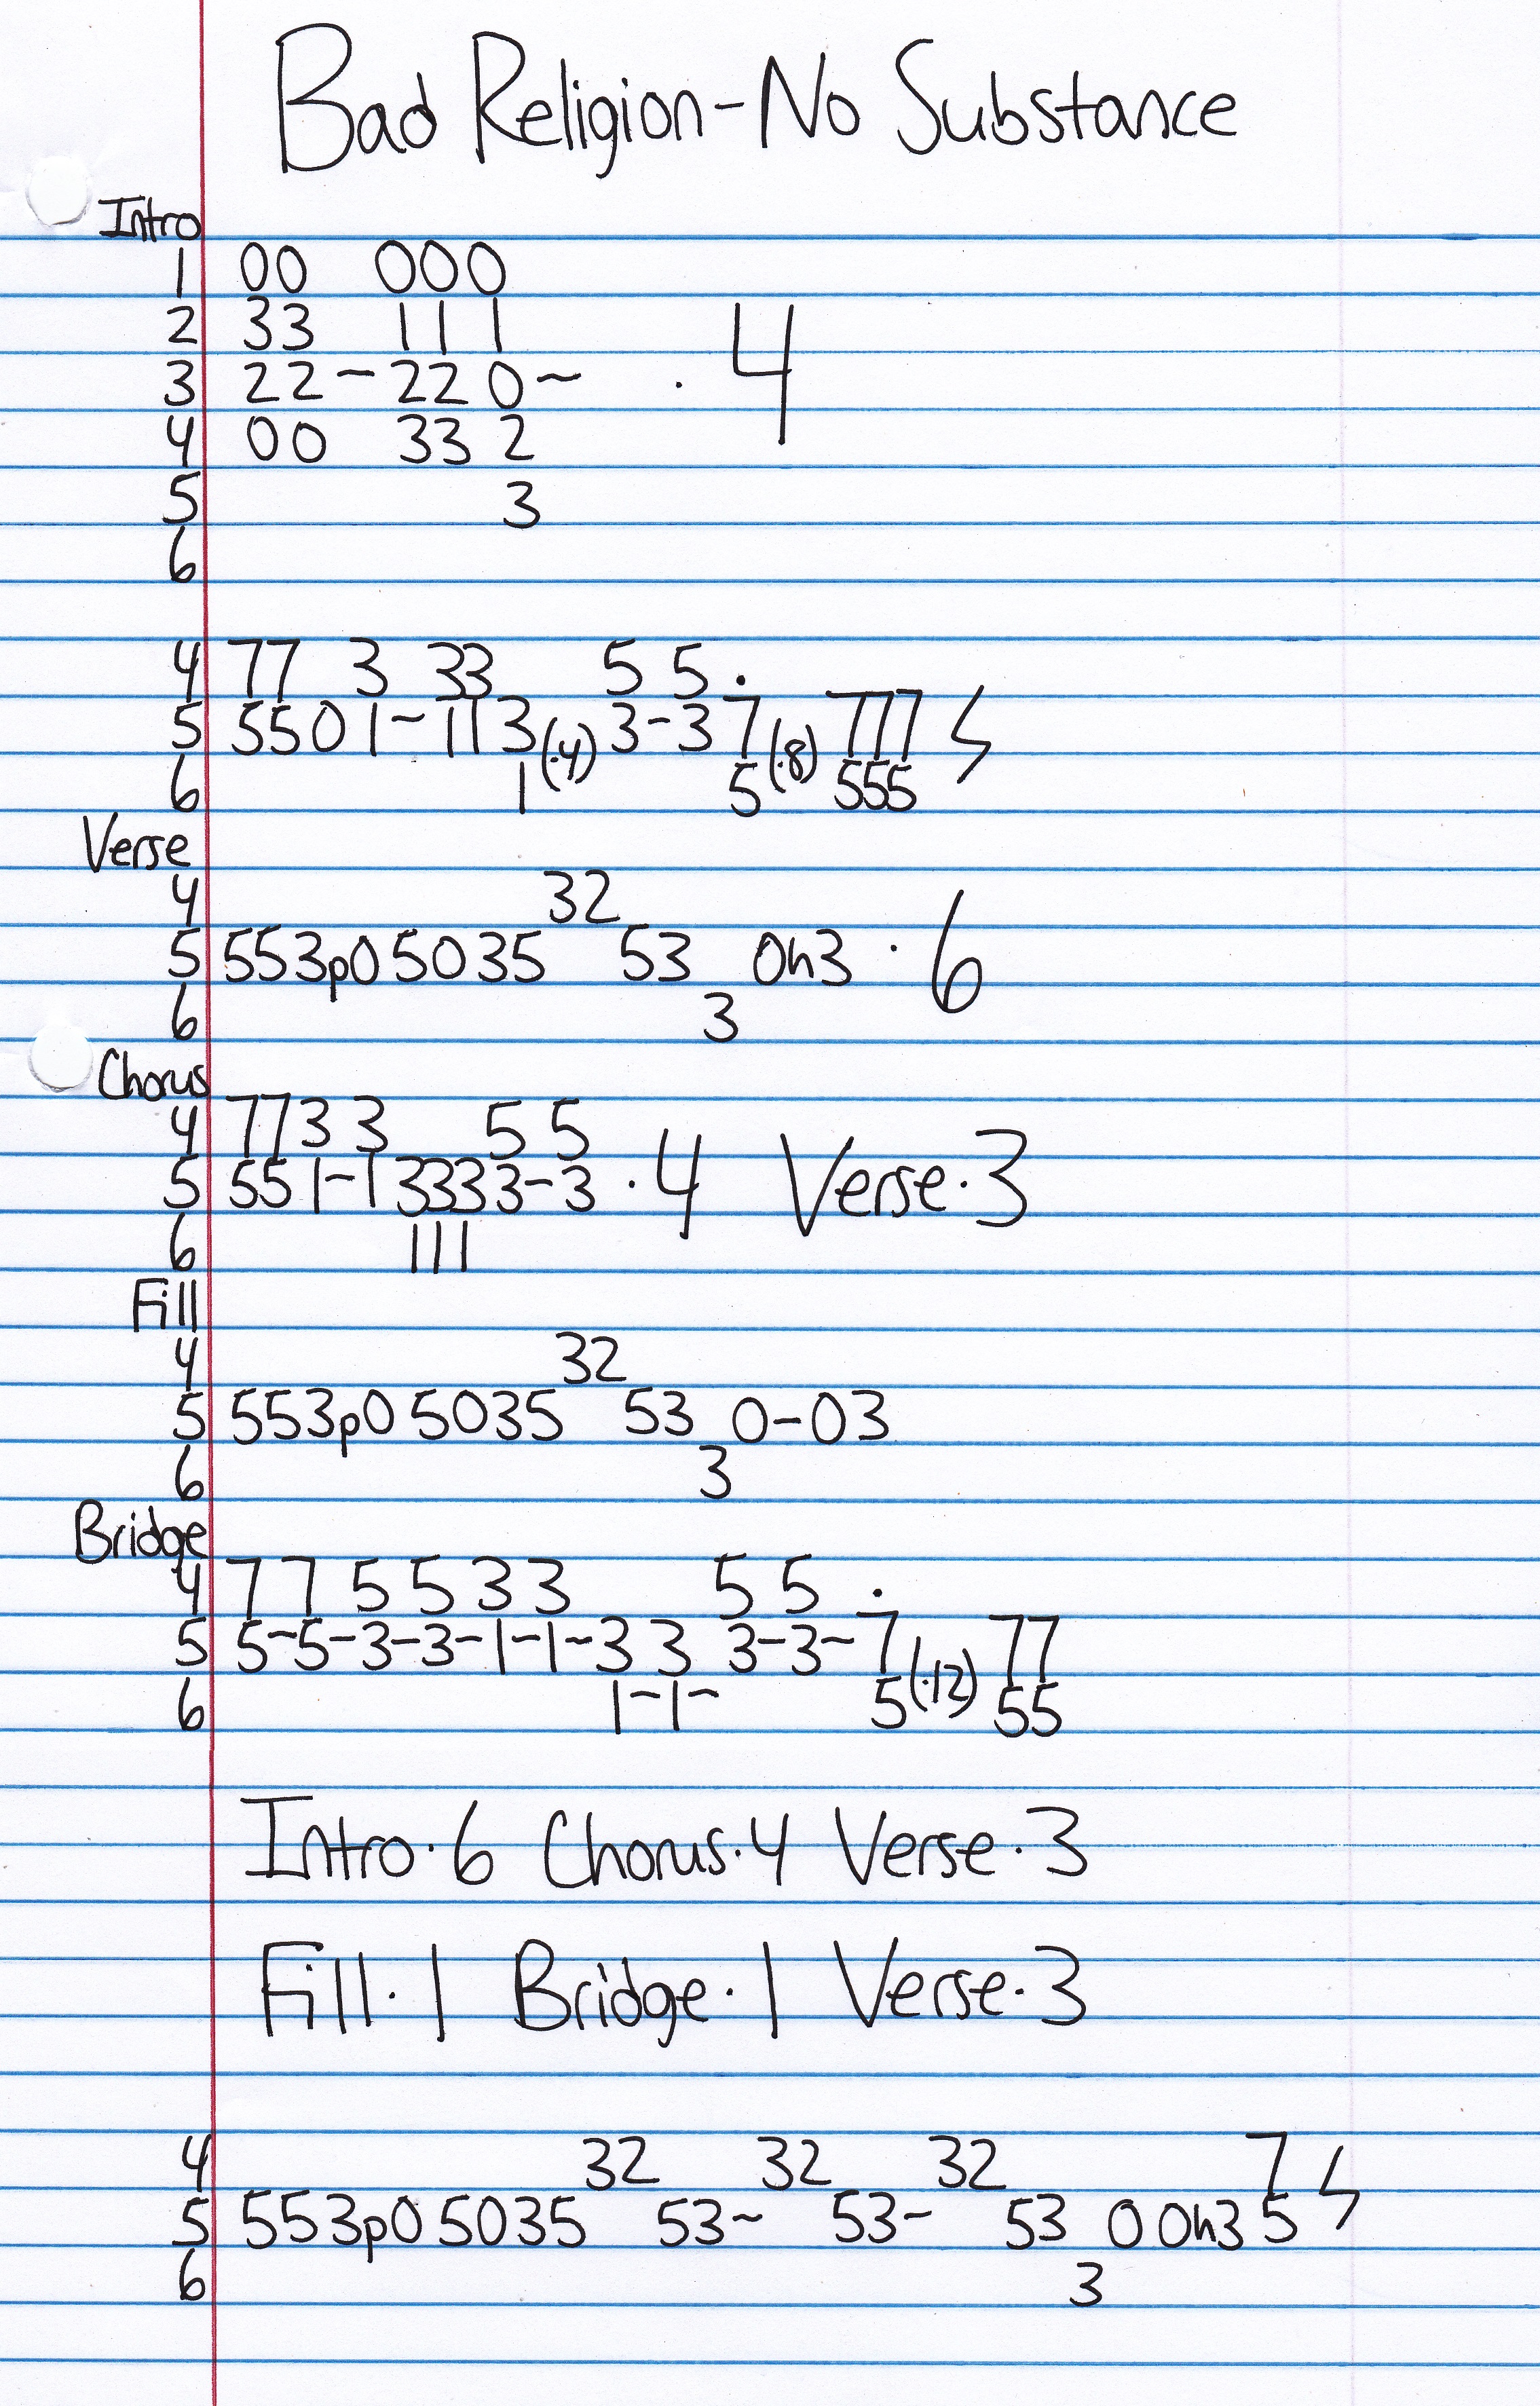 Bad Religion-No Substance
Intro
1 00 000
2 33 111
3 22~220~ ·4
4 00 332
5 3
6
4 77 3 33 5 5 ·
5 5501~113(·4)3-37(·8)777 ϟ
6 1 5 555
Verse
4 32
5 553p05035 53 0h3 ·6
6 3
Chorus
4 7733 5 5
5 551-133333-3 ·4 Verse·3
6 111
Fill
4 32
5 553p05035 53 0-03
6 3
Bridge
4 7 7 5 5 3 3 5 5 ·
5 5~5-3-3~1~1~3 3 3-3~7(·12)77
6 1~1~ 5 55
Intro·6 Chorus·4 Verse·3
Fill·1 Bridge·1 Verse·3
4 32 32 32 7 ϟ
5 553p05035 53~ 53~ 53 00h35
6 3